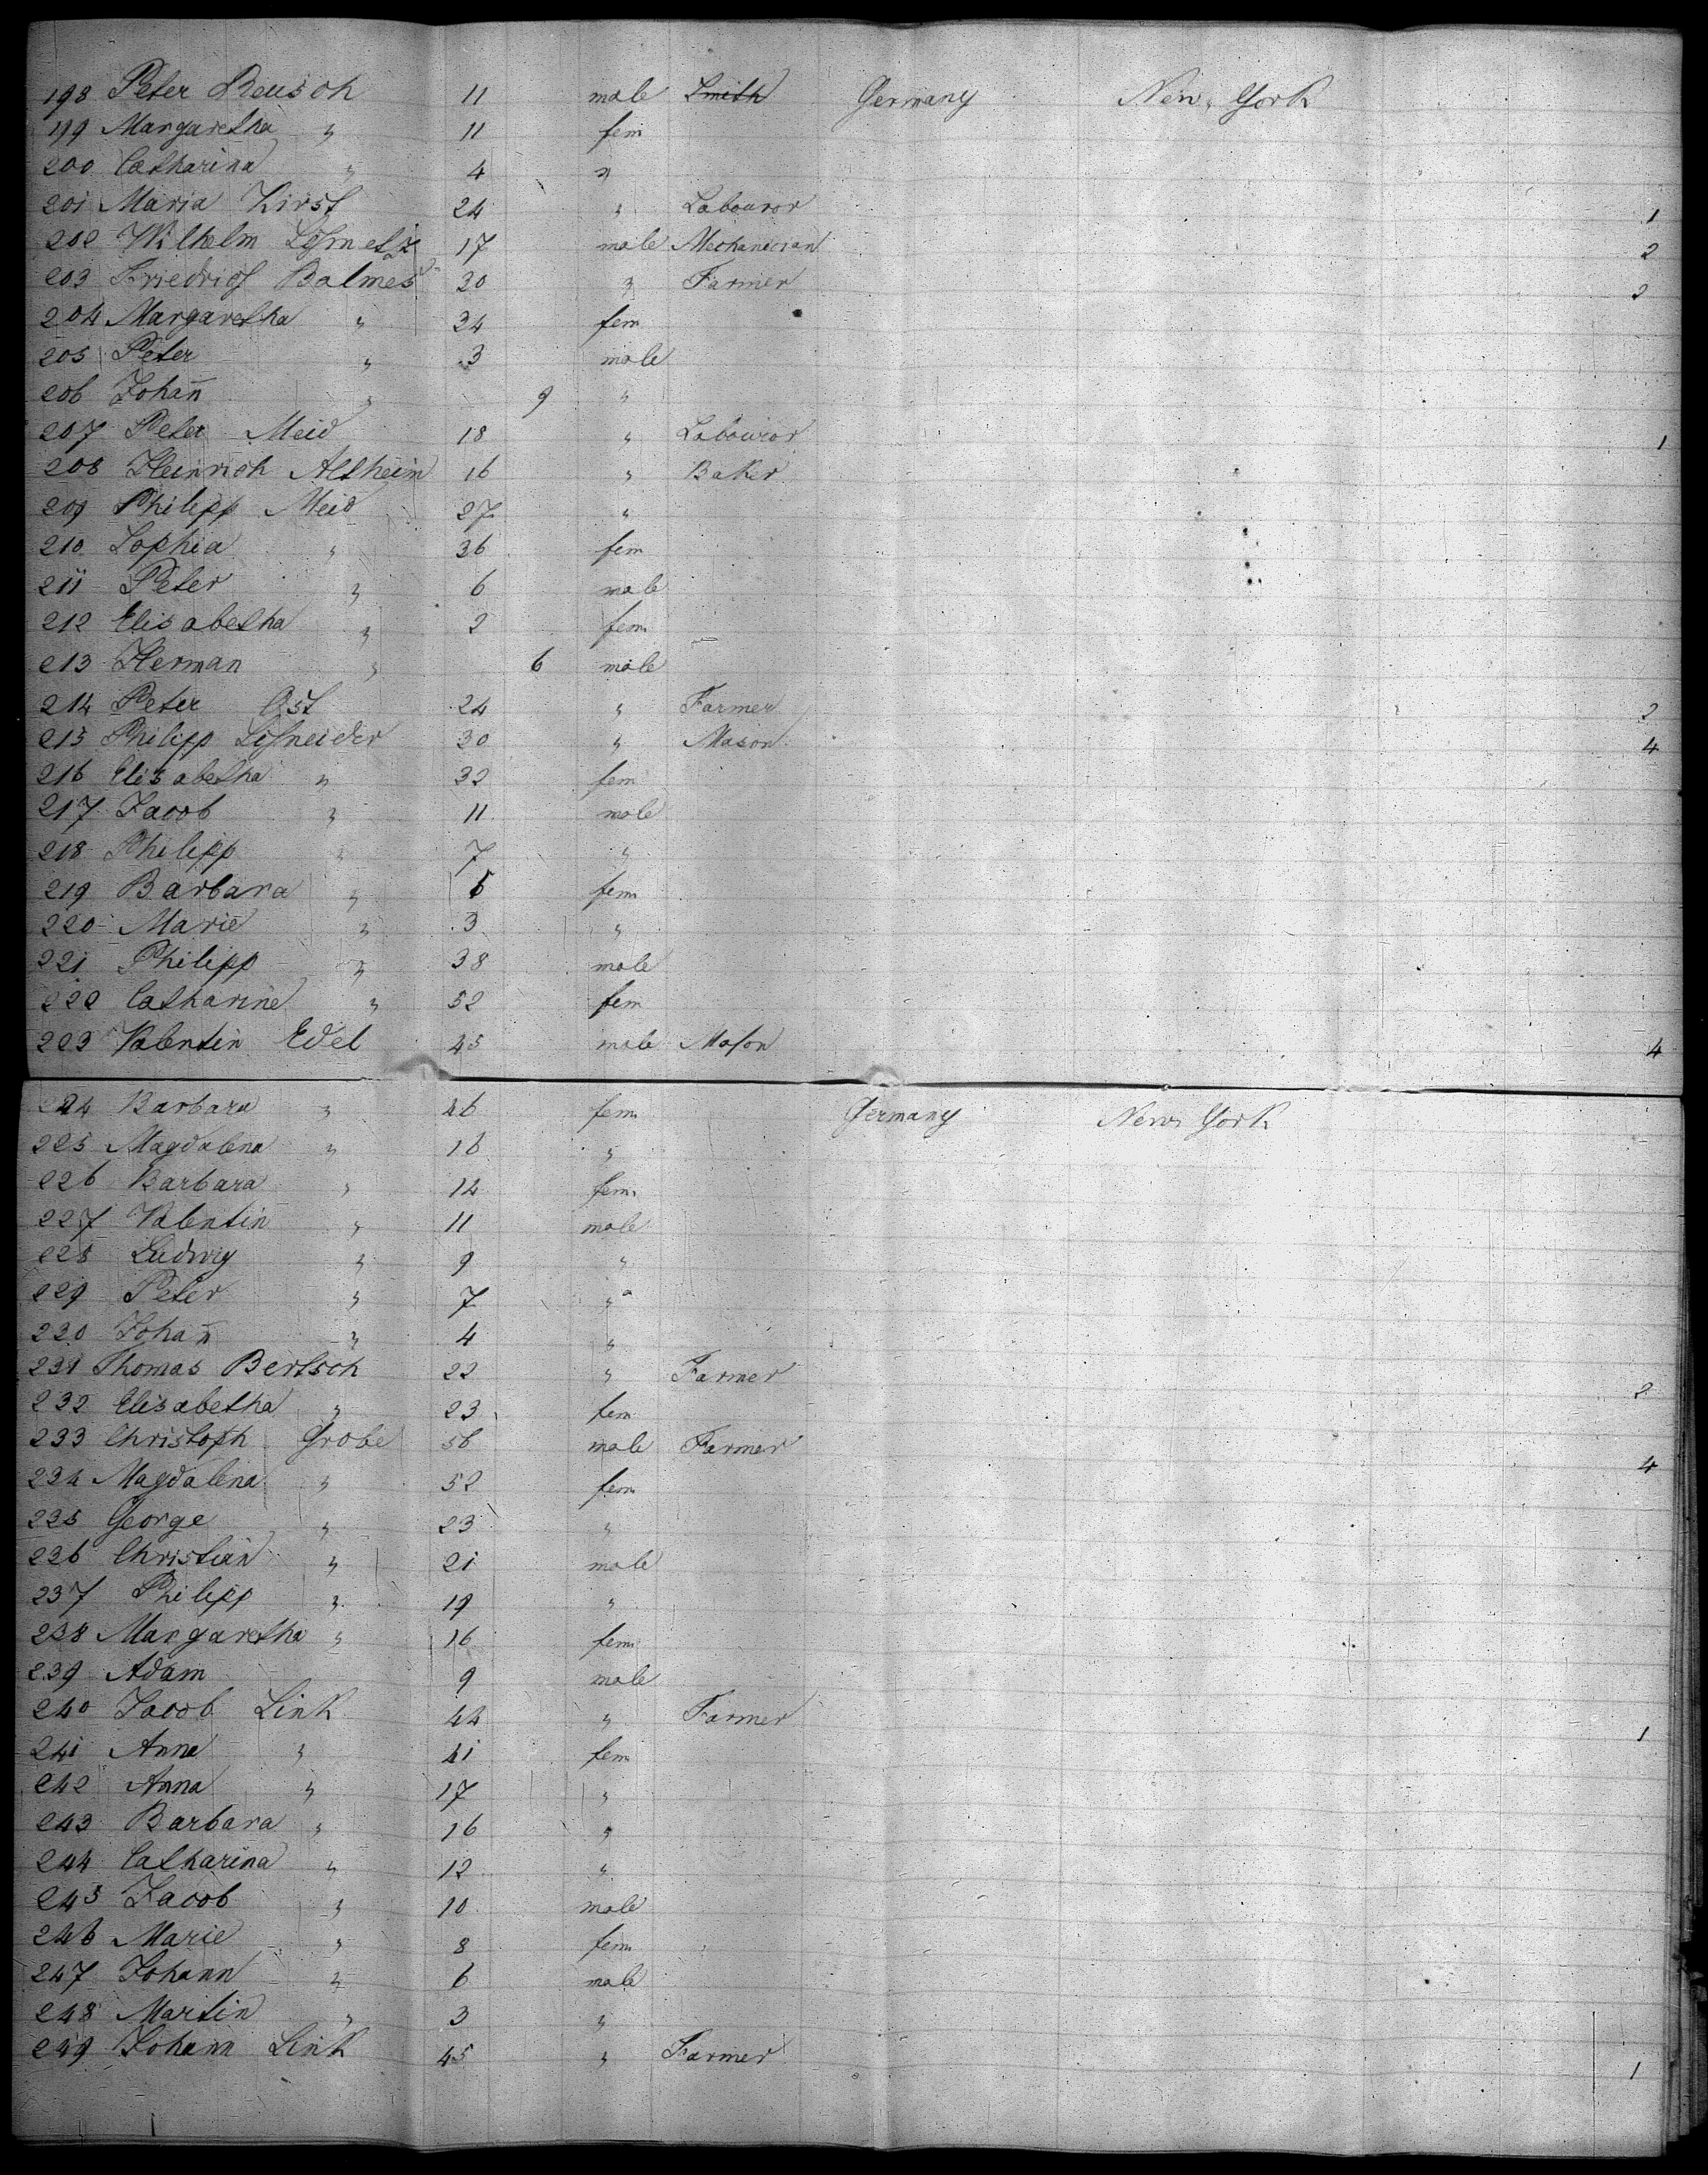 198 Peter Reusch 11 male Smith Germany New York
199 Margaretha " 11 fem
200 Catharina " 4 "
201 Maria Hirst 24 " Labouror 1
202 Wilhelm Schmelz 17 male Mechanician 2
203 Friedrich Balmes 30 " Farmer 2
204 Margaretha " 34 fem
205 Peter " 3 male
206 Johan̅ " 9 "
207 Peter Meid 18 " Labouror 1
208 Heinrich Altheim 16 " Baker
209 Philipp Meid 27 "
210 Sophia " 36 fem
211 Peter " 6 male
212 Elisabetha " 2 fem
213 Herman " 6 male
214 Peter Ost 24 " Farmer 2
215 Philipp Schneider 30 " Mason 4
216 Elisabetha " 32 fem
217 Jacob " 11 male
218 Philipp " 7 "
219 Barbara " 5 fem
220 Marie " 3 "
221 Philipp " 38 male
222 Catharine " 52 fem
223 Valentin Edel 45 male Mason 4
224 Barbara " 46 fem Germany New York
225 Magdalena " 16 "
226 Barbara " 14 fem.
227 Valentin " 11 male
228 Ludwig " 9 "
229 Peter " 7 "
230 Johan̅ " 4 "
231 Thomas Bertsch 22 " Farmer 2
232 Elisabetha " 23 fem
233 Christoph Grobe 56 male Farmer 4
234 Magdalena " 52 fem
235 George " 23 "
236 Christian " 21 male
237 Philipp " 19 "
238 Margaretha " 16 fem
239 Adam 9 male
240 Jacob Link 44 " Farmer 1
241 Anne " 41 fem
242 Anna " 17 "
243 Barbara " 16 "
244 Catharina " 12 "
245 Jacob " 10 male
246 Marie " 8 fem
247 Johann " 6 male
248 Martin " 3 "
249 Johann Link 45 " Farmer 1